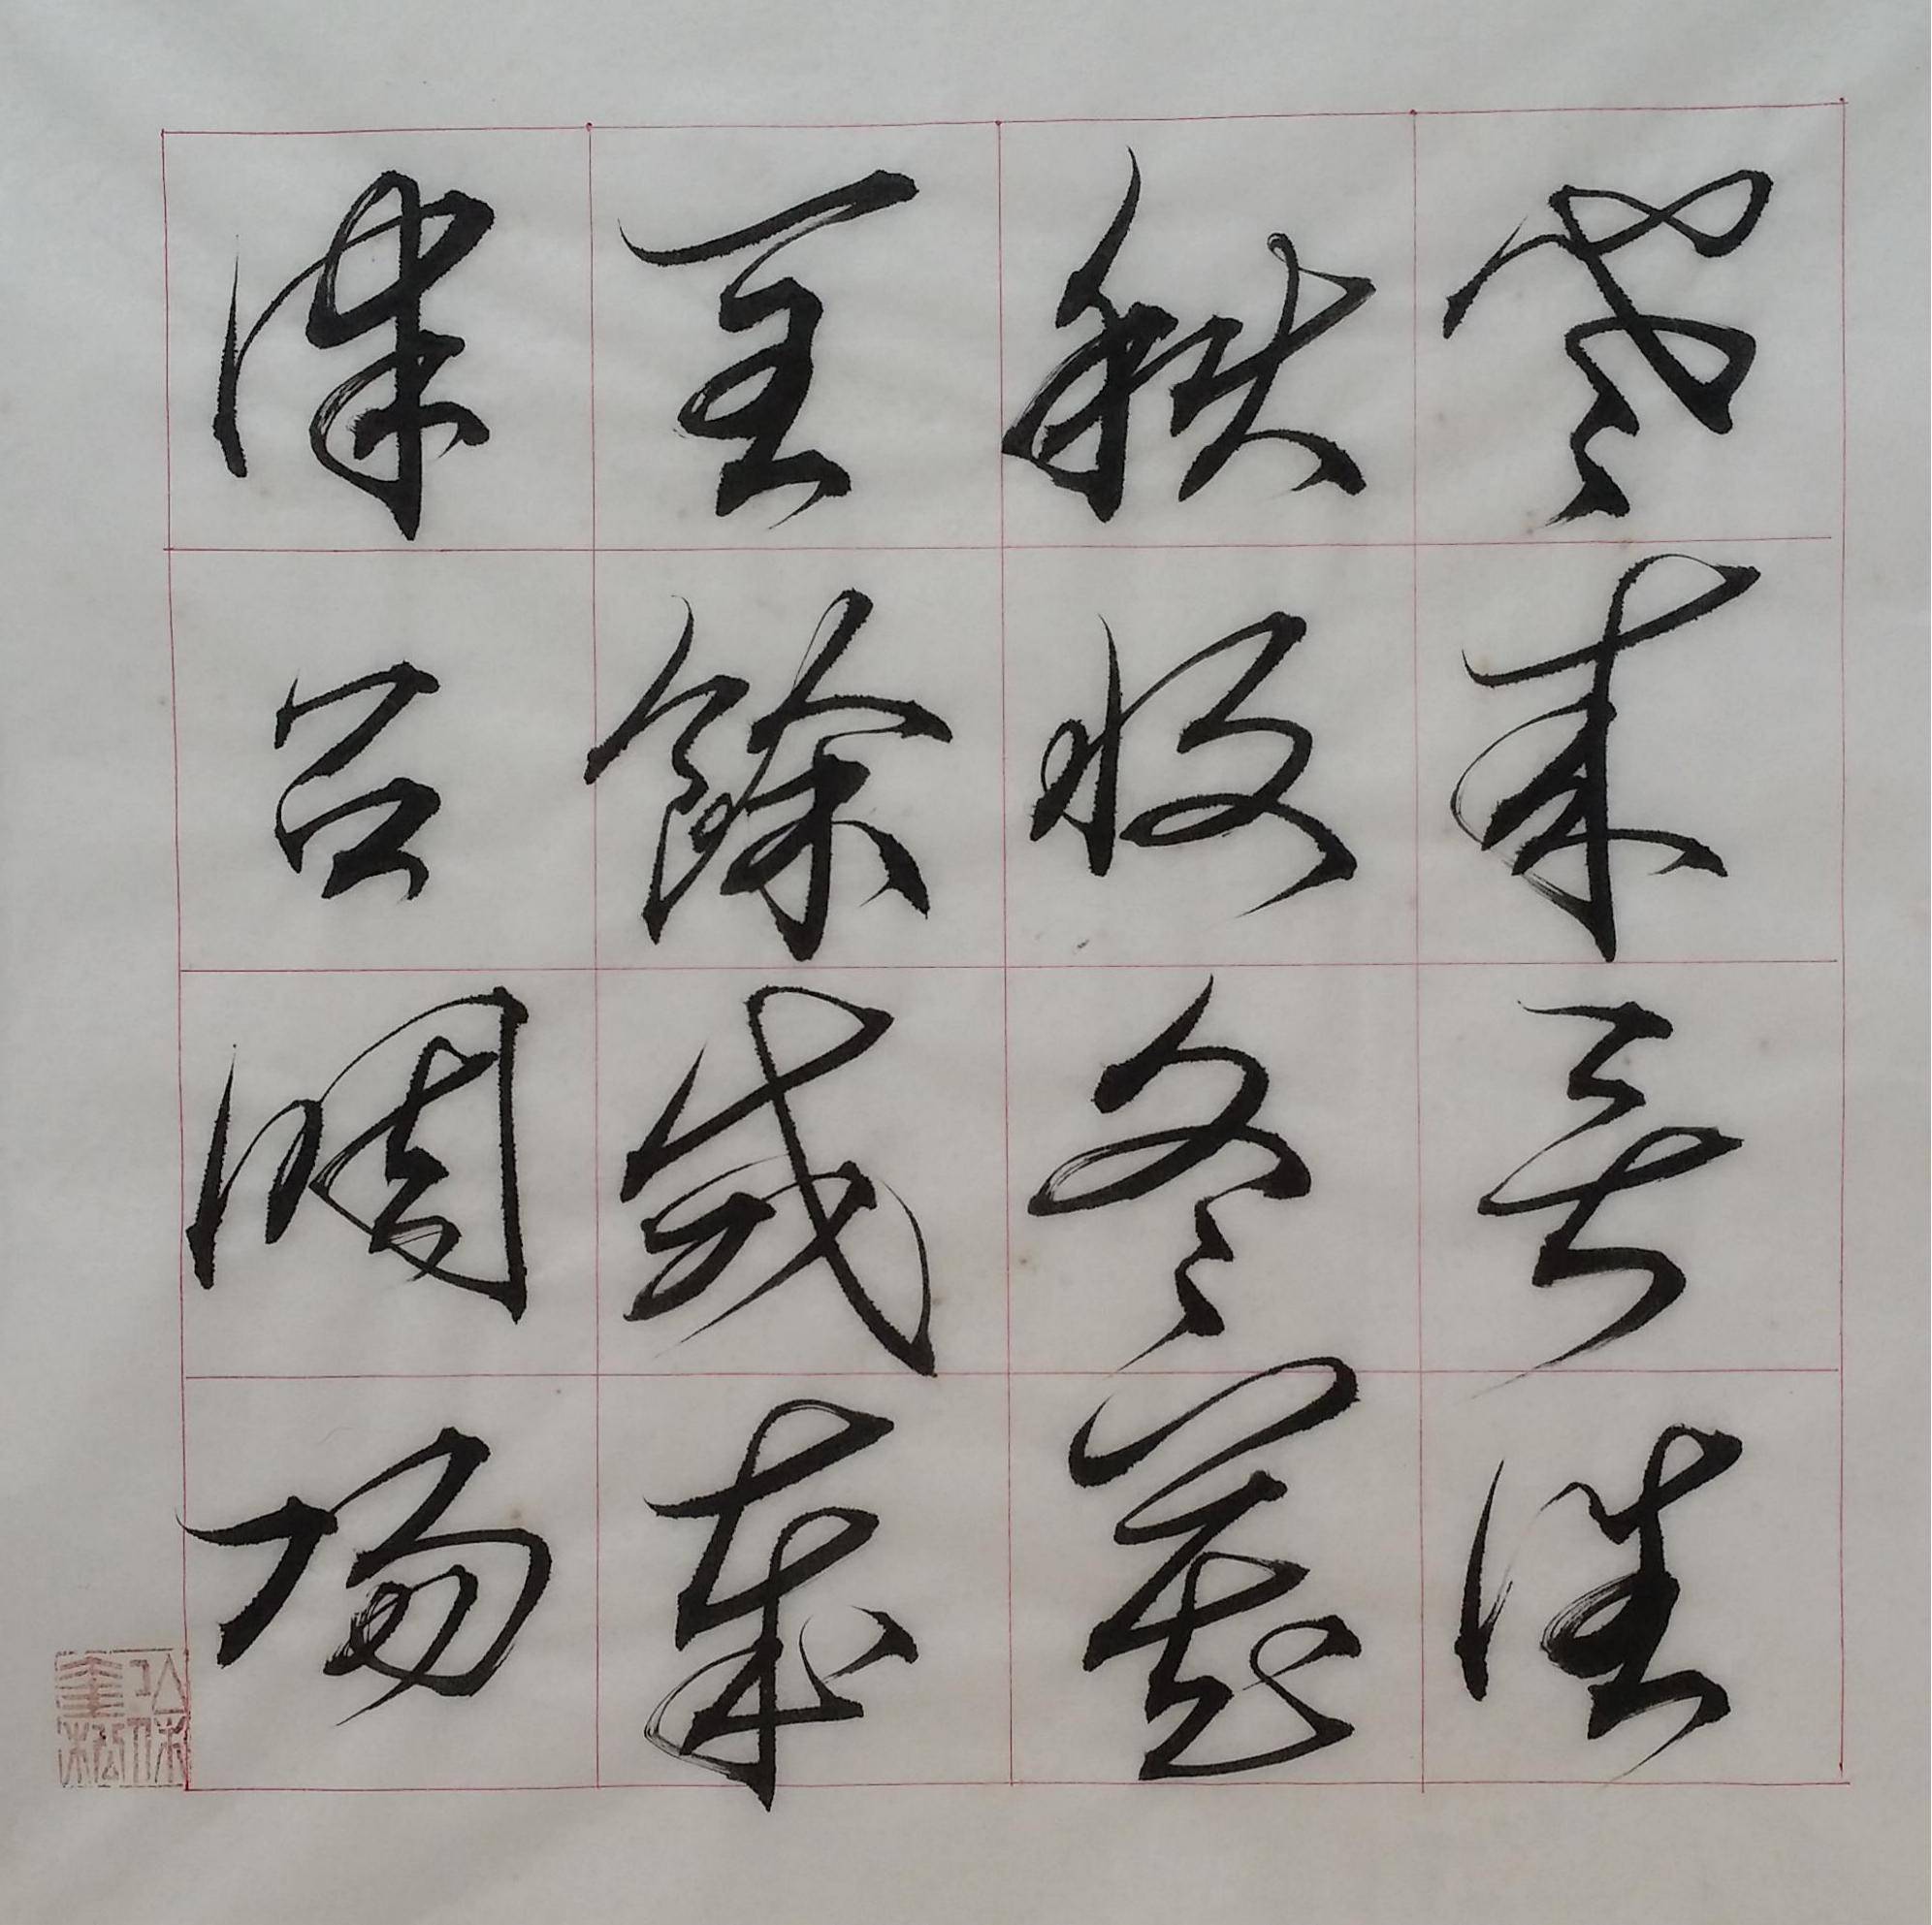 寒来暑往
秋收冬藏
閏餘成歲
律吕調陽